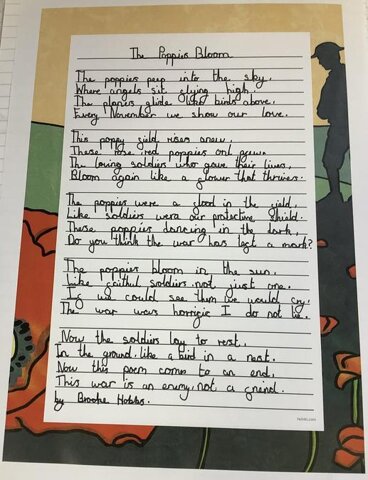 The Poppies Bloom
The poppies peep into the sky,
Where angels sit flying high.
The planes glide like birds above,
Every November we show our love.
This poppy field rises anew,
These rose red poppies only grew.
The loving soldiers who gave their lives,
Bloom again like a flower that thrives.
The poppies were a flood in the field,
Like soldiers were our protective shield.
These poppies dancing in the dark,
Do you think the war has left a mark?
The poppies bloom in the sun,
Like faithful soldiers not just one.
If we could see them we would cry,
The war was horrific I do not lie.
Now the soldiers lay to rest,
In the ground, like a bird in a nest.
Now this poem comes to an end,
This war is an enemy, not a friend.
by Brooke